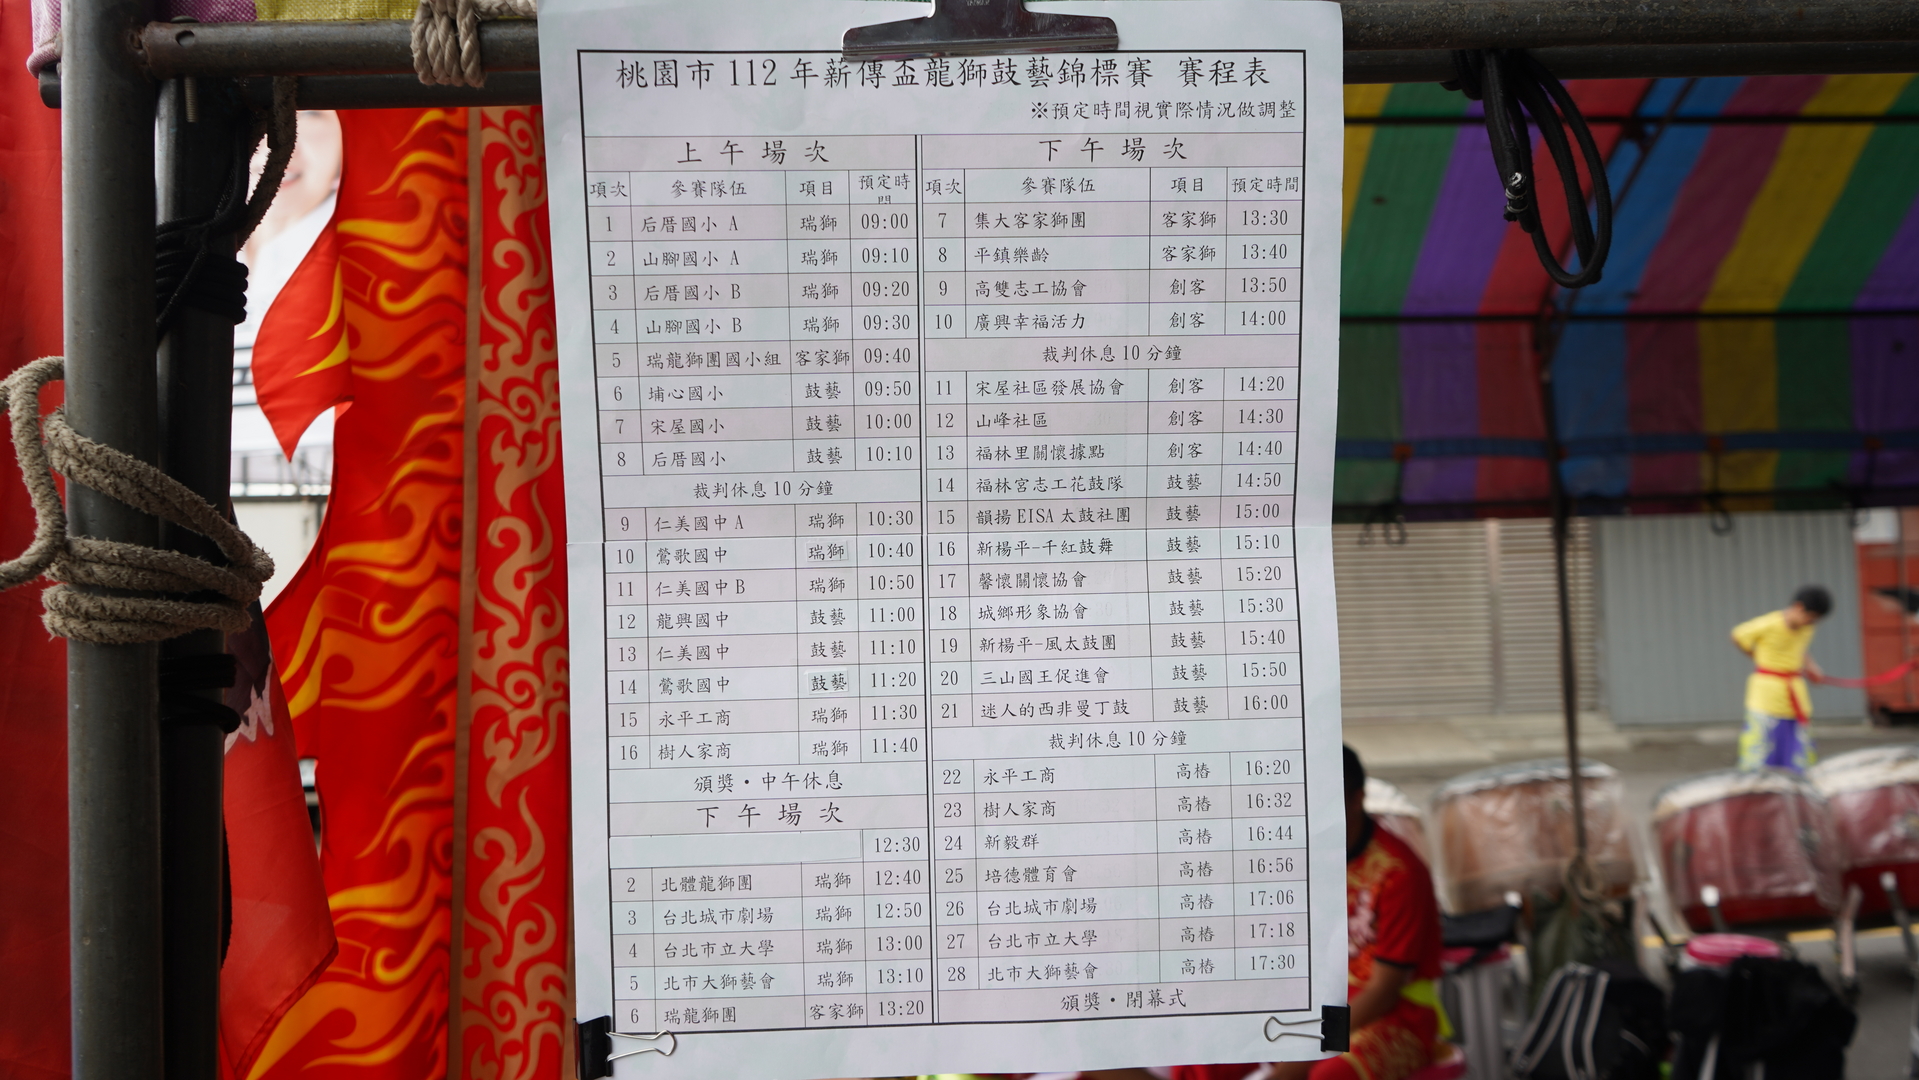 桃園市 112 年薪傳盃龍獅鼓藝錦標賽 賽程表
※預定時間視實際情況做調整
上午場次
項次 參賽隊伍 項目 預定時間
1 后厝國小 A 瑞獅 09:00
2 山腳國小 A 瑞獅 09:10
3 后厝國小 B 瑞獅 09:20
4 山腳國小 B 瑞獅 09:30
5 瑞龍獅團國小組 客家獅 09:40
6 埔心國小 鼓藝 09:50
7 宋屋國小 鼓藝 10:00
8 后厝國小 鼓藝 10:10
裁判休息 10 分鐘
9 仁美國中 A 瑞獅 10:30
10 鶯歌國中 瑞獅 10:40
11 仁美國中 B 瑞獅 10:50
12 龍興國中 鼓藝 11:00
13 仁美國中 鼓藝 11:10
14 鶯歌國中 鼓藝 11:20
15 永平工商 瑞獅 11:30
16 樹人家商 瑞獅 11:40
頒獎・中午休息
下午場次
12:30
2 北體龍獅團 瑞獅 12:40
3 台北城市劇場 瑞獅 12:50
4 台北市立大學 瑞獅 13:00
5 北市大獅藝會 瑞獅 13:10
6 瑞龍獅團 客家獅 13:20
下午場次
項次 參賽隊伍 項目 預定時間
7 集大客家獅團 客家獅 13:30
8 平鎮樂齡 客家獅 13:40
9 高雙志工協會 創客 13:50
10 廣興幸福活力 創客 14:00
裁判休息 10 分鐘
11 宋屋社區發展協會 創客 14:20
12 山峰社區 創客 14:30
13 福林里關懷據點 創客 14:40
14 福林宮志工花鼓隊 鼓藝 14:50
15 韻揚 EISA 太鼓社團 鼓藝 15:00
16 新楊平-千紅鼓舞 鼓藝 15:10
17 馨懷關懷協會 鼓藝 15:20
18 城鄉形象協會 鼓藝 15:30
19 新楊平-風太鼓團 鼓藝 15:40
20 三山國王促進會 鼓藝 15:50
21 迷人的西非曼丁鼓 鼓藝 16:00
裁判休息 10 分鐘
22 永平工商 高樁 16:20
23 樹人家商 高樁 16:32
24 新毅群 高樁 16:44
25 培德體育會 高樁 16:56
26 台北城市劇場 高樁 17:06
27 台北市立大學 高樁 17:18
28 北市大獅藝會 高樁 17:30
頒獎・閉幕式